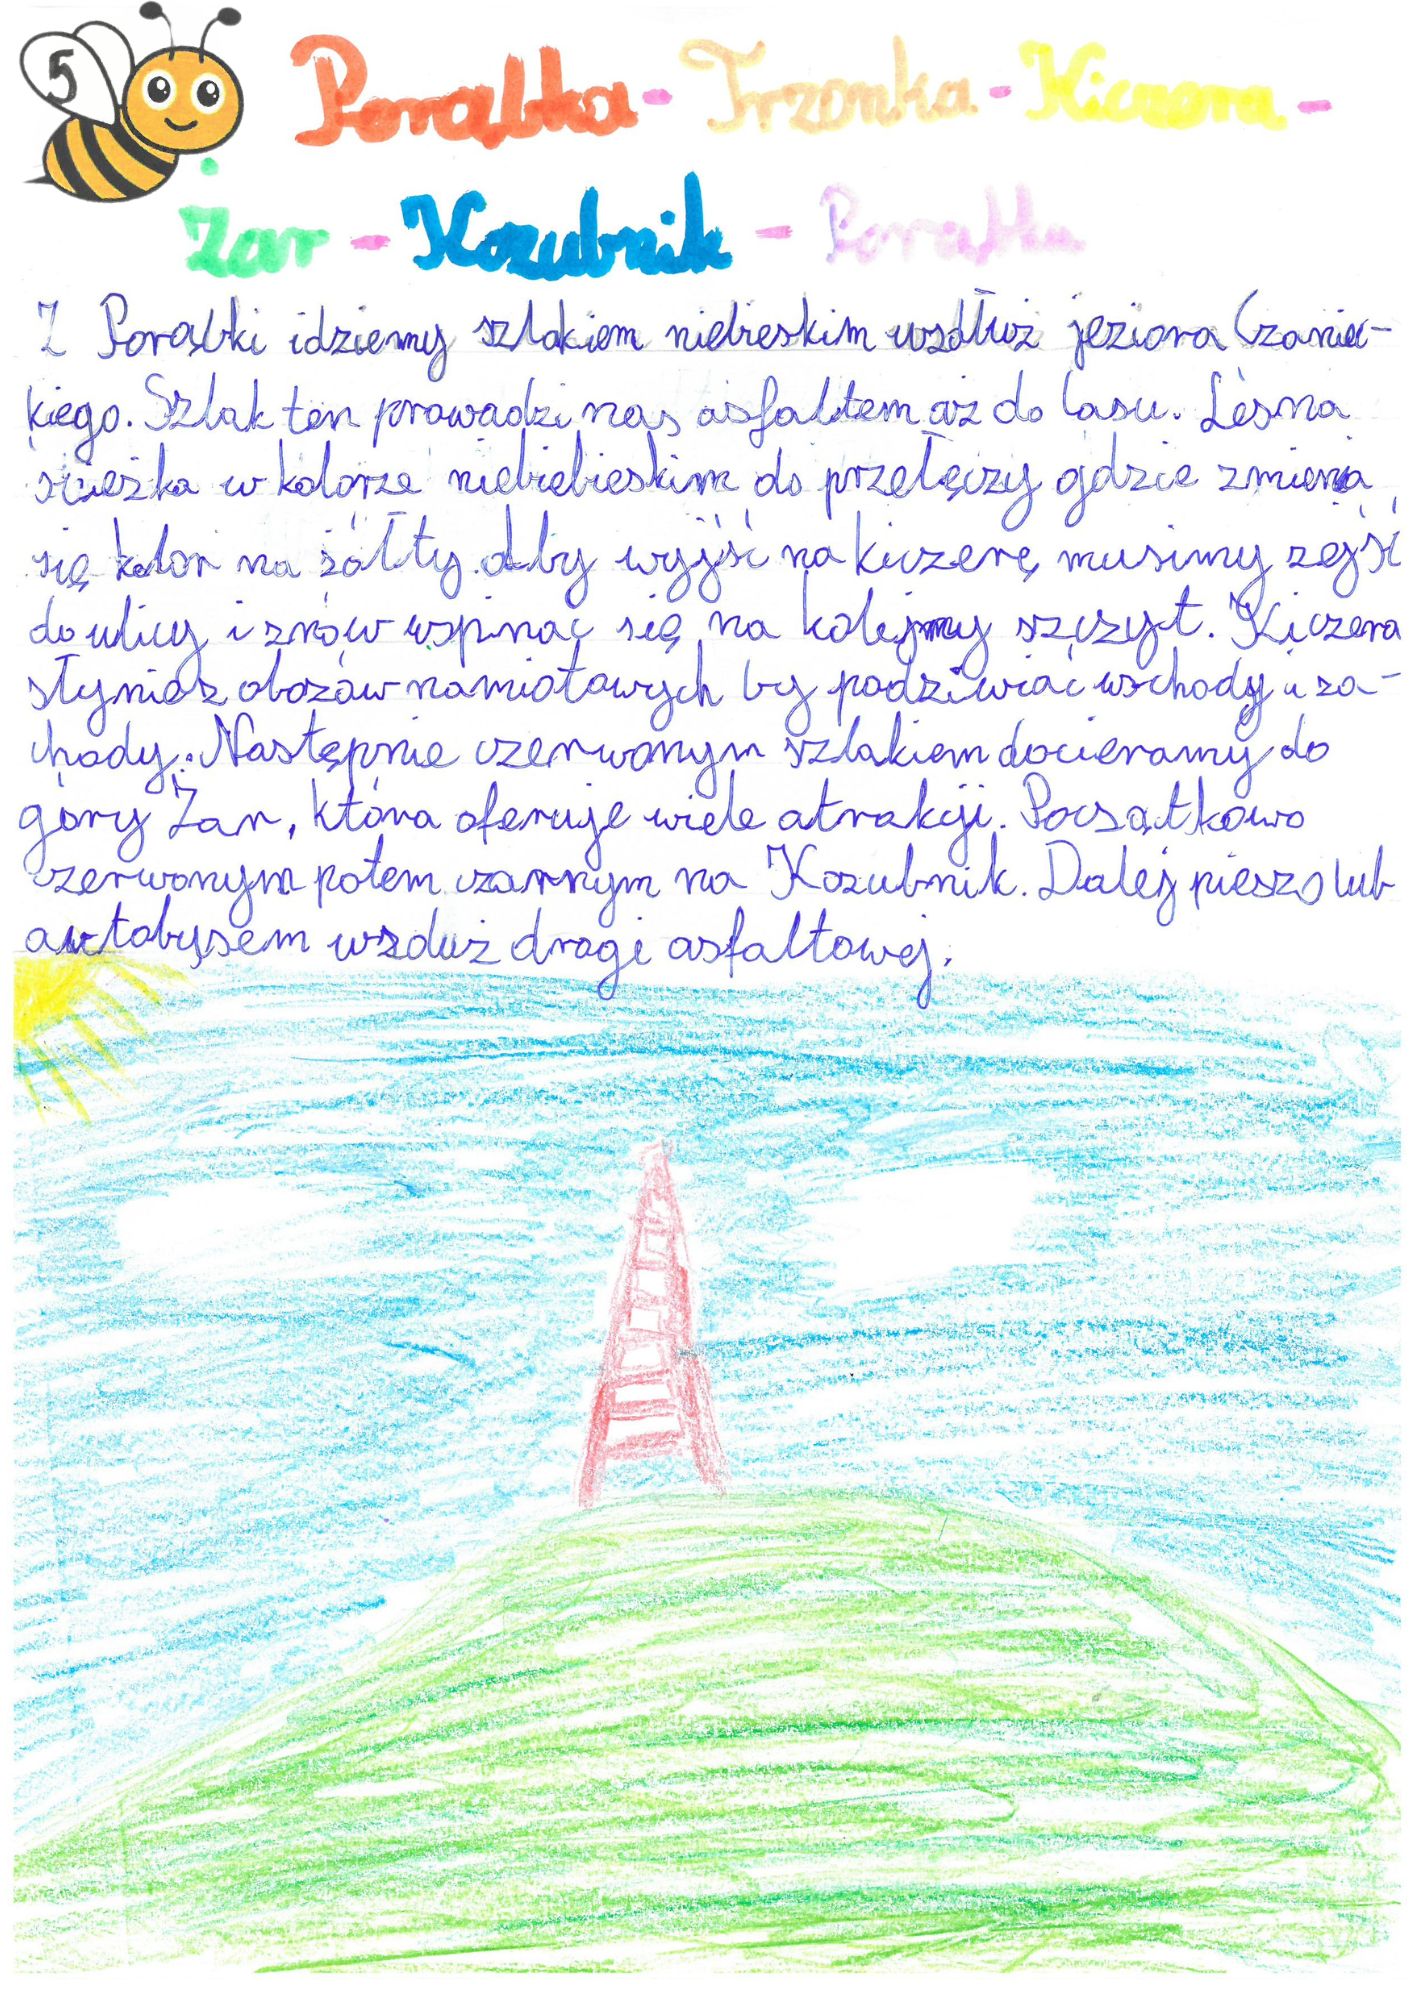 5
Porąbka - Trzonka - Kiczera -
Żar - Kozubnik - Porąbka
Z Porąbki idziemy szlakiem niebieskim wzdłuż jeziora Czaniec-
kiego. Szlak ten prowadzi nas asfaltem aż do lasu. Leśna
ścieżka w kolorze niebiebieskim do przełęczy gdzie zmienia
się kolor na żółty. Aby wyjść na kiczerę musimy zejść
do ulicy i znów wspinać się na kolejny szczyt. Kiczera
słynie z obozów namiotowych by podziwiać wschody i za-
chody. Następnie czerwonym szlakiem docieramy do
góry Żar, która oferuje wiele atrakcji. Początkowo
czerwonym potem czarnym na Kozubnik. Dalej pieszo lub
autobusem wzduż drogi asfaltowej.